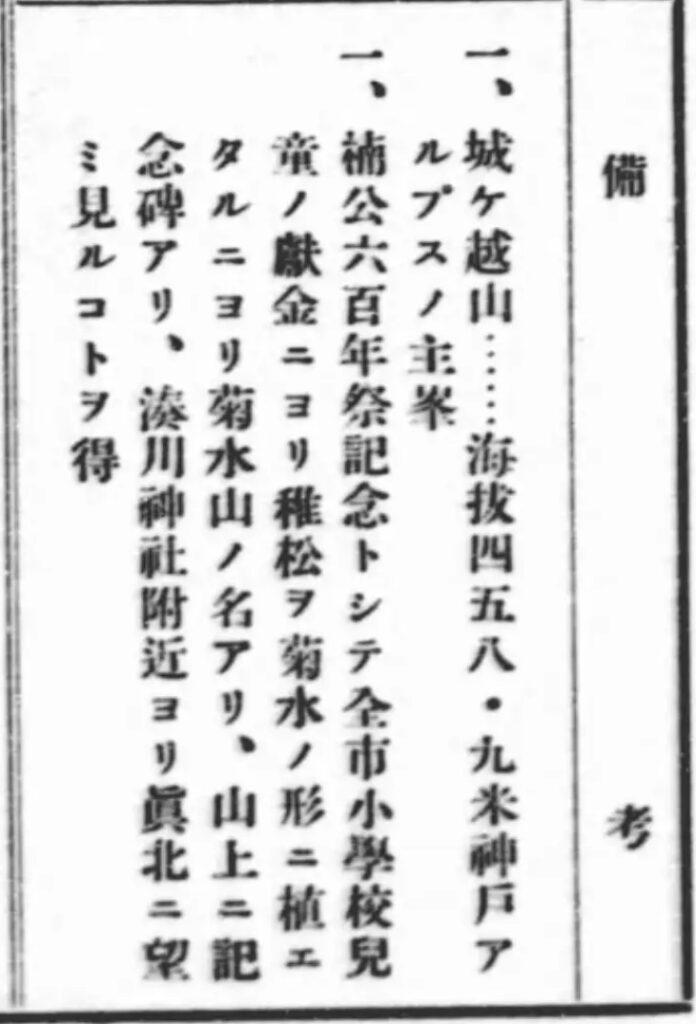 備考
一、城ケ越山……海抜四五八・九米神戸ア
ルプスノ主峯
一、楠公六百年祭記念トシテ全市小學校兒
童ノ獻金ニヨリ稚松ヲ菊水ノ形ニ植エ
タルニヨリ菊水山ノ名アリ、山上ニ記
念碑アリ、湊川神社附近ヨリ眞北ニ望
ミ見ルコトヲ得